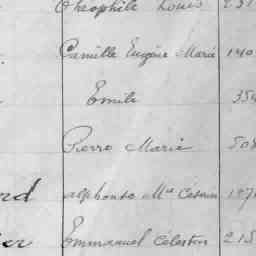 Théophile Louis 237
Camille Eugène Marie 140
Emile 354
Pierre Marie 508
nd Alphonse Mie Césaire 187
er Emmanuel Célestin 215